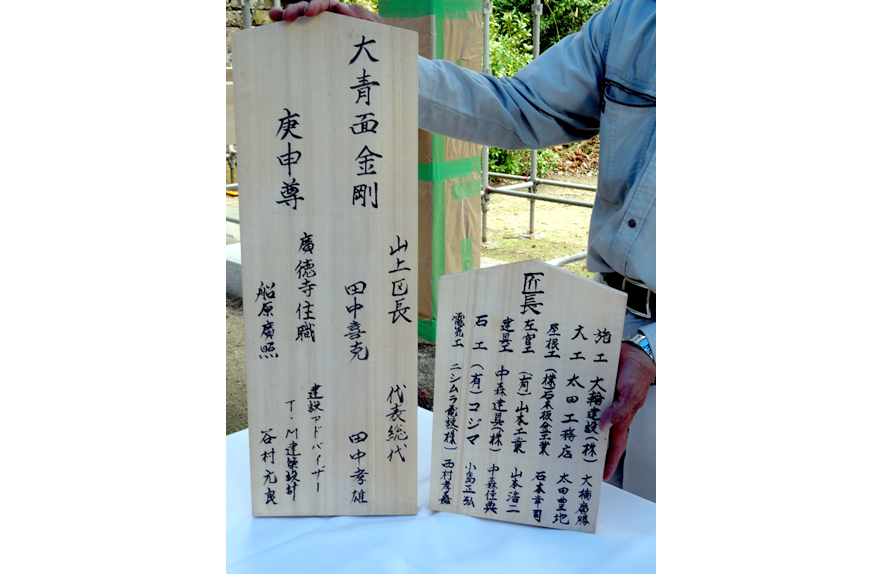 大青面金剛
庚申尊
山上区長
田中喜克
廣徳寺住職
船原廣照
代表総代
田中孝雄
建設アドバイザー
T・M建築設計
谷村元良
匠長
施工 大輪建設(株)
大工 太田工務店 太田豊地
屋根工 (株)石本板金工業 石本幸司
左官工 (有)山本工業 山本浩二
建具工 中森建具(株) 中森佳典
石工 (有)コジマ 小島正弘
電気工 ニシムラ電設(株) 西村孝嘉